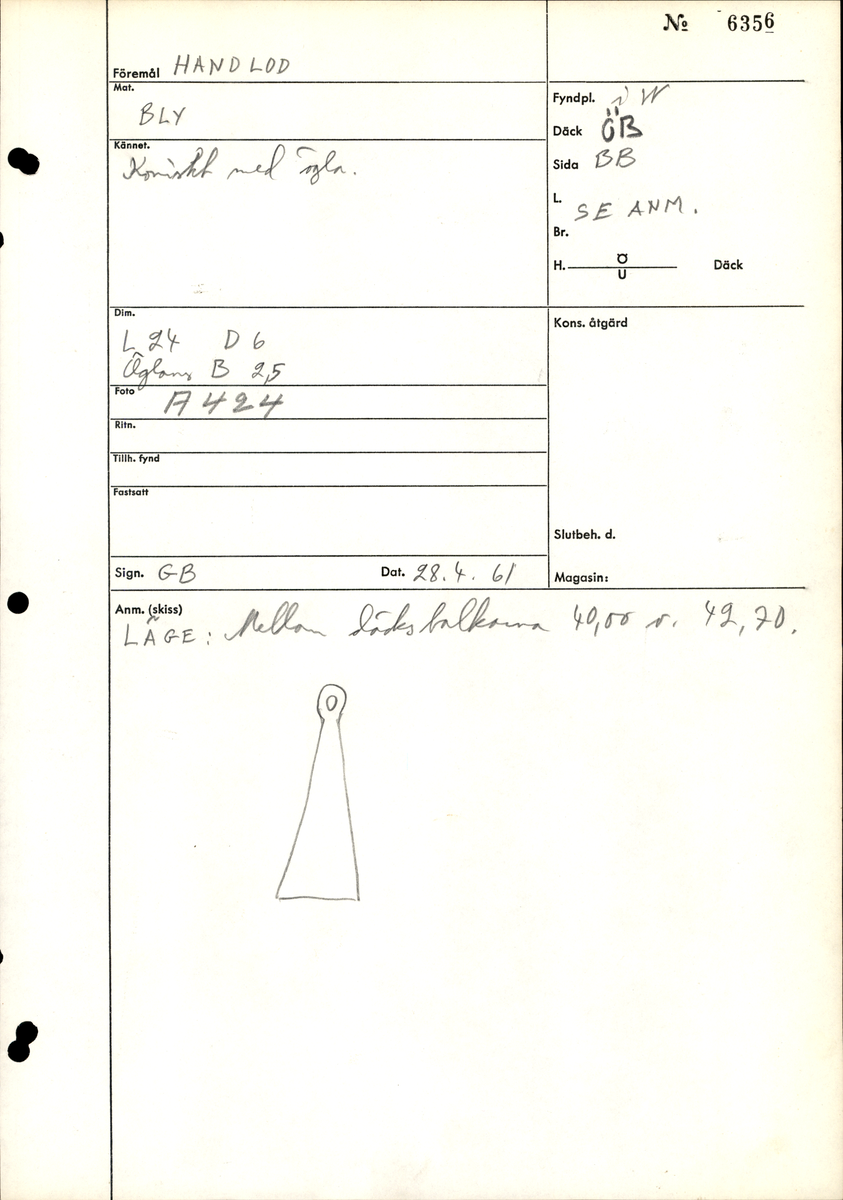 № 6356
Föremål HANDLOD
Mat.
BLY
Kännet.
Koniskt med ögla.
Fyndpl. i W
Däck ÖB
Sida BB
L. SE ANM.
Br.
H. Ö U Däck
Dim.
L 24 D 6
Öglans B 2,5
Foto A 424
Ritn.
Tillh. fynd
Fastsatt
Sign. GB Dat. 28.4.61
Kons. åtgärd
Slutbeh. d.
Magasin:
Anm. (skiss)
LÄGE: Mellan däcksbalkarna 40,00 o. 42,70.